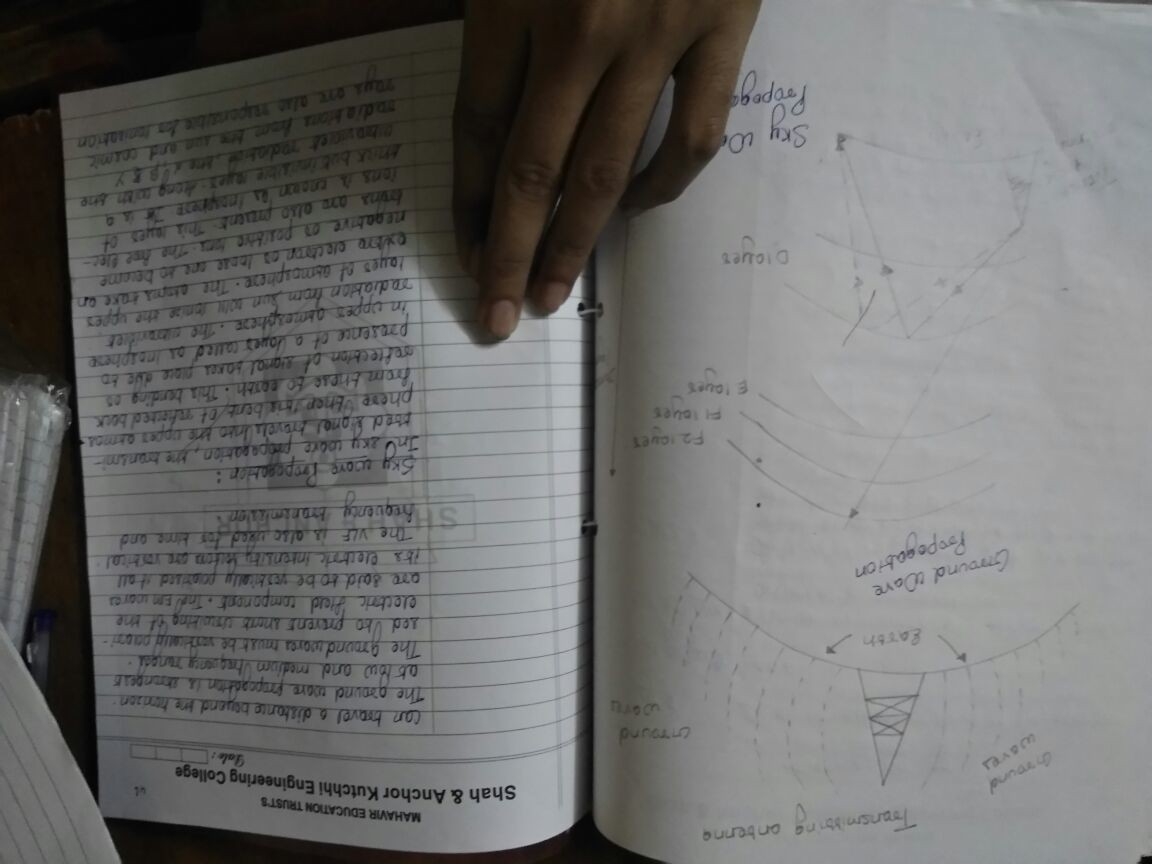 Transmitting antenna
Ground
waves
Ground
waves
Earth
Ground Wave
Propogation
F2 layer
F1 layer
E layer
D layer
Sky
Propoga
MAHAVIR EDUCATION TRUST'S
Shah & Anchor Kutchhi Engineering College
Date:
can travel a distance beyond the horizon.
The ground wave propogation is strongest
at low and medium frequency ranges.
The ground waves must be vertically polari-
sed to prevent short circuiting of the
electric field component. The EM waves
are said to be vertically polarised if all
its electric intensity vectors are vertical.
The VLF is also used for time and
frequency transmission.
SHAH & ANCHOR
Sky wave Propogation:
In sky wave propogation, the transmi-
tted signal travels into the upper atmos-
phere then it is bent of reflected back
from these to earth. This bending or
reflection of signal takes place due to
presence of a layer called as inosphere
in upper atmosphere. The ultraviolet
radiation from sun will ionize the upper
layer of atmosphere. The atoms take an
extra electron or loose one to become
negative or positive ions. The free elec-
trons are also present. This layer of
ions is known as inosphere. It is a
thick but invisible layer. Along with the
ultraviolet radiation, the α, β & γ
radiations from the sun and cosmic
rays are also responsible for ionisation